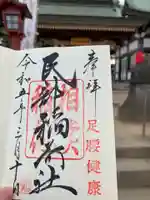 奉拝
足腰健康
民部稲荷社
令和五年三月十日